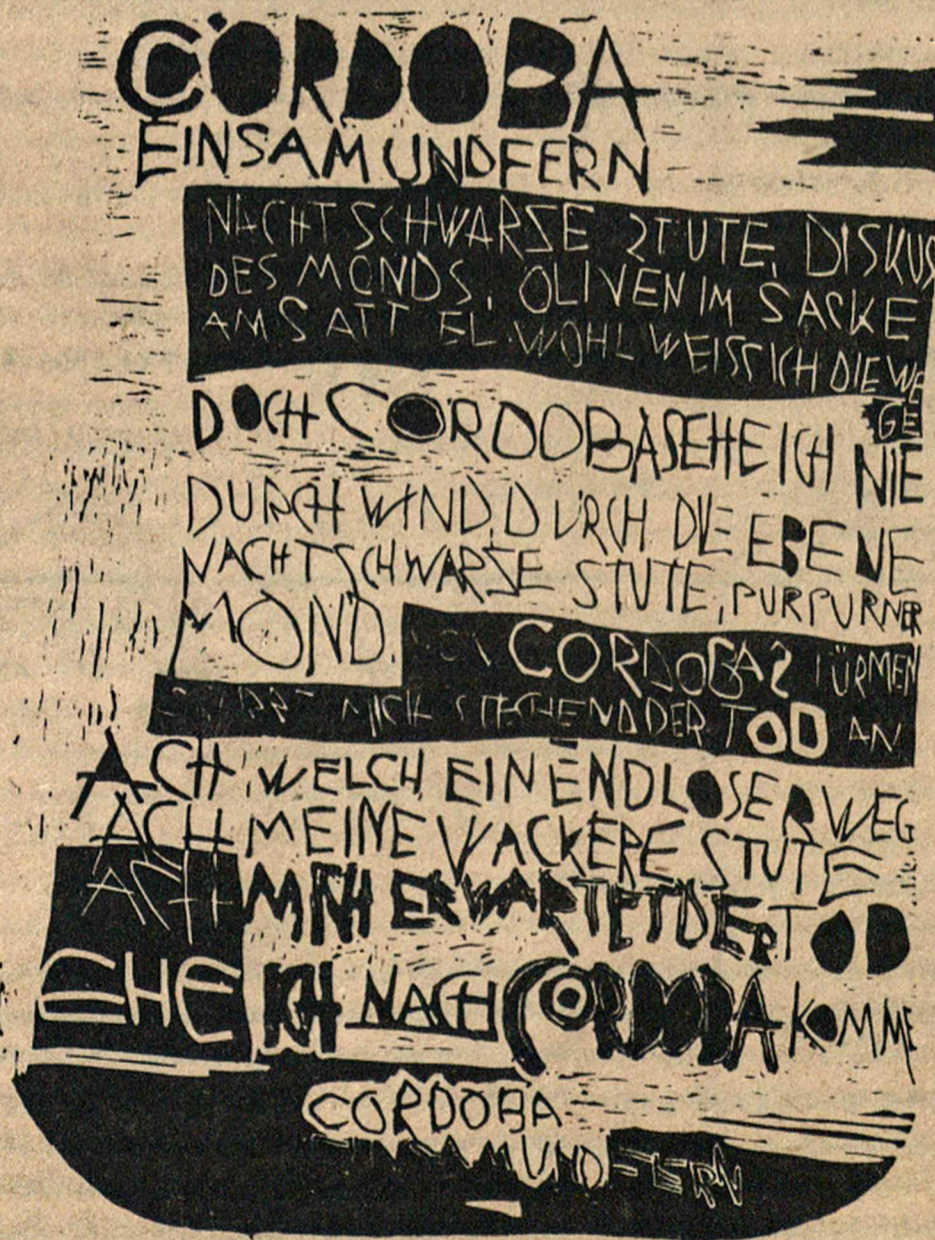 CORDOBA
EINSAM UND FERN
NACHTSCHWARZE STUTE, DISKUS
DES MONDS, OLIVEN IM SACKE
AM SATTEL. WOHL WEISS ICH DIE WE
GE
DOCH CORDOBA SEHE ICH NIE
DURCH WIND, DURCH DIE EBENE
NACHTSCHWARZE STUTE, PURPURNER
MOND. VON CORDOBAS TÜRMEN
MICH STECHEND DER TOD AN.
ACH WELCH EIN ENDLOSER WEG
ACH MEINE WACKERE STUTE
ACH MICH ERWARTET DER TOD
EHE ICH NACH CORDOBA KOMME
CORDOBA
EINSAM UND FERN